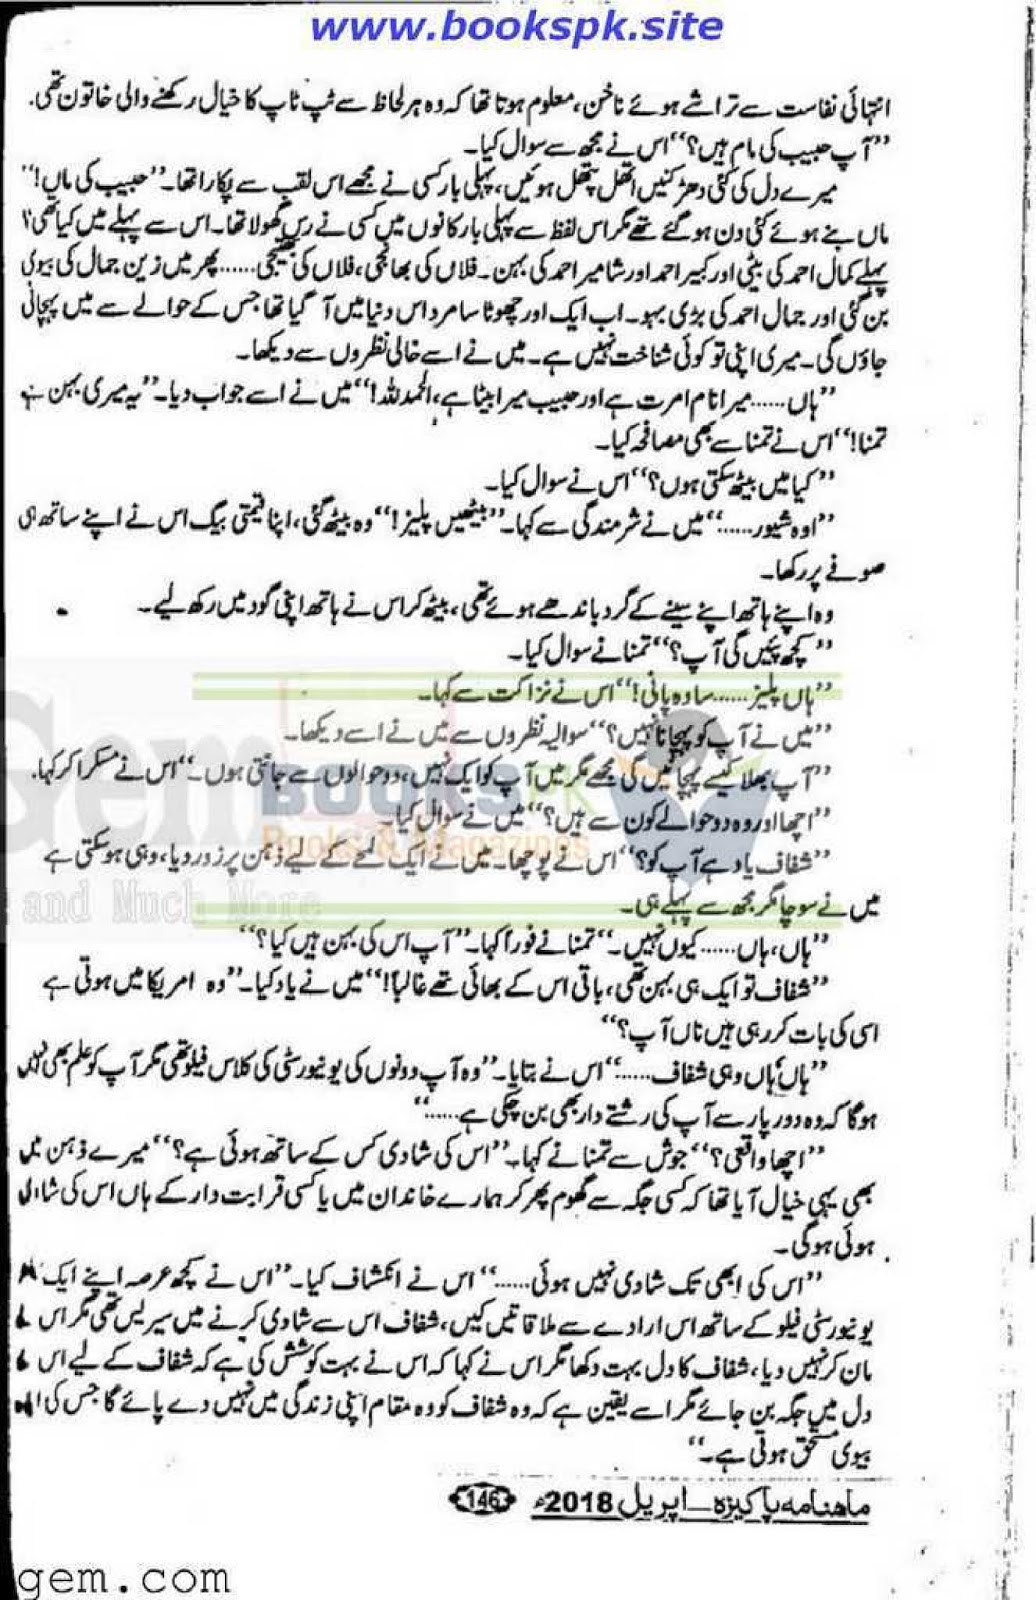 www.bookspk.site
انتہائی نفاست سے تراشے ہوئے ناخن، معلوم ہوتا تھا کہ وہ ہر لحاظ سے ٹپ ٹاپ کا خیال رکھنے والی خاتون تھی۔
”آپ حبیب کی مام ہیں؟“ اس نے مجھ سے سوال کیا۔
میرے دل کی کئی دھڑکنیں اتھل پتھل ہوئیں، پہلی بار کسی نے مجھے اس لقب سے پکارا تھا۔ ”حبیب کی ماں!“
ماں بنے ہوئے کئی دن ہو گئے تھے مگر اس لفظ سے پہلی بار کانوں میں کسی نے رس گھولا تھا۔ اس سے پہلے میں کیا تھی؟
پہلے کمال احمد کی بیٹی اور کبیر احمد اور شامیر احمد کی بہن۔ فلاں کی بھانجی، فلاں کی بھتیجی...... پھر میں زین جمال کی بیوی
بن گئی اور جمال احمد کی بڑی بہو۔ اب ایک اور چھوٹا سا مرد اس دنیا میں آ گیا تھا جس کے حوالے سے میں پہچانی
جاؤں گی۔ میری اپنی تو کوئی شناخت نہیں ہے۔ میں نے اسے خالی نظروں سے دیکھا۔
”ہاں...... میرا نام امرت ہے اور حبیب میرا بیٹا ہے، الحمدللہ!“ میں نے اسے جواب دیا۔ ”یہ میری بہن ہے
تمنا!“ اس نے تمنا سے بھی مصافحہ کیا۔
”کیا میں بیٹھ سکتی ہوں؟“ اس نے سوال کیا۔
”اوہ شیور......“ میں نے شرمندگی سے کہا۔ ”بیٹھیں پلیز!“ وہ بیٹھ گئی، اپنا قیمتی بیگ اس نے اپنے ساتھ ہی
صوفے پر رکھا۔
وہ اپنے ہاتھ اپنے سینے کے گرد باندھے ہوئے تھی، بیٹھ کر اس نے ہاتھ اپنی گود میں رکھ لیے۔
”کچھ پئیں گی آپ؟“ تمنا نے سوال کیا۔
”ہاں پلیز...... سادہ پانی!“ اس نے نزاکت سے کہا۔
”میں نے آپ کو پہچانا نہیں؟“ سوالیہ نظروں سے میں نے اسے دیکھا۔
”آپ بھلا کیسے پہچانیں گی مجھے مگر میں آپ کو ایک نہیں، دو حوالوں سے جانتی ہوں۔“ اس نے مسکرا کر کہا۔
”اچھا اور وہ دو حوالے کون سے ہیں؟“ میں نے سوال کیا۔
”شفاف یاد ہے آپ کو؟“ اس نے پوچھا۔ میں نے ایک لمحے کے لیے ذہن پر زور دیا، وہی ہو سکتی ہے
میں نے سوچا مگر مجھ سے پہلے ہی۔
”ہاں، ہاں...... کیوں نہیں۔“ تمنا نے فوراً کہا۔ ”آپ اس کی بہن ہیں کیا؟“
”شفاف تو ایک ہی بہن تھی، باقی اس کے بھائی تھے غالباً!“ میں نے یاد کیا۔ ”وہ امریکا میں ہوتی ہے
اسی کی بات کر رہی ہیں ناں آپ؟“
”ہاں ہاں وہی شفاف......“ اس نے بتایا۔ ”وہ آپ دونوں کی یونیورسٹی کی کلاس فیلو تھی مگر آپ کو علم بھی نہیں
ہوگا کہ وہ دور پار سے آپ کی رشتے دار بھی بن چکی ہے......“
”اچھا واقعی؟“ جوش سے تمنا نے کہا۔ ”اس کی شادی کس کے ساتھ ہوئی ہے؟“ میرے ذہن میں
بھی یہی خیال آیا تھا کہ کسی جگہ سے گھوم پھر کر ہمارے خاندان میں یا کسی قرابت دار کے ہاں اس کی شادی
ہوئی ہوگی۔
”اس کی ابھی تک شادی نہیں ہوئی......“ اس نے انکشاف کیا۔ ”اس نے کچھ عرصہ اپنے ایک
یونیورسٹی فیلو کے ساتھ اس ارادے سے ملاقاتیں کیں، شفاف اس سے شادی کرنے میں سیریس تھی مگر اس
مان کر نہیں دیا، شفاف کا دل بہت دکھا مگر اس نے کہا کہ اس نے بہت کوشش کی ہے کہ شفاف کے لیے اس
دل میں جگہ بن جائے مگر اسے یقین ہے کہ وہ شفاف کو وہ مقام اپنی زندگی میں نہیں دے پائے گا جس کی
بیوی مستحق ہوتی ہے۔“
ماہنامہ پاکیزہ۔ اپریل 2018ء 146
Gem
and Much More
BOOKSPK
Books & Magazines
gem.com